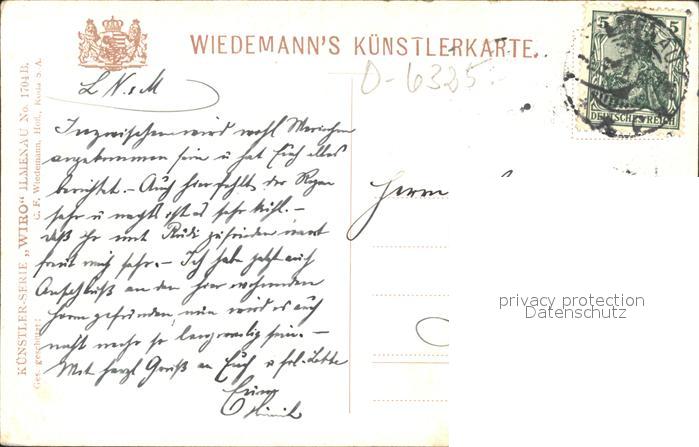 WIEDEMANN'S KÜNSTLERKARTE.
D-6325.
5 5
DEUTSCHES REICH
L N. M
Inzwischen wird wohl
angekommen sein u hat Euch alles
berichtet. – Auch hier fehlt der Regen
sehr u nachts ist es sehr kühl. –
daß Ihr mit Rudi zufrieden wart
freut mich sehr. – Ich habe jetzt auch
Anschluß an den hier wohnenden
Herrn gefunden, nun wird es auch
nicht mehr so langweilig sein. –
Mit herzl Gruß an Euch u frl. Lotte
Euer
Herrn
KÜNSTLER-SERIE „WIRO“ ILMENAU No. 1704B.
Ges. geschützt: C. F. Wiedemann, Hofl., Roda S. A.
privacy protection
Datenschutz